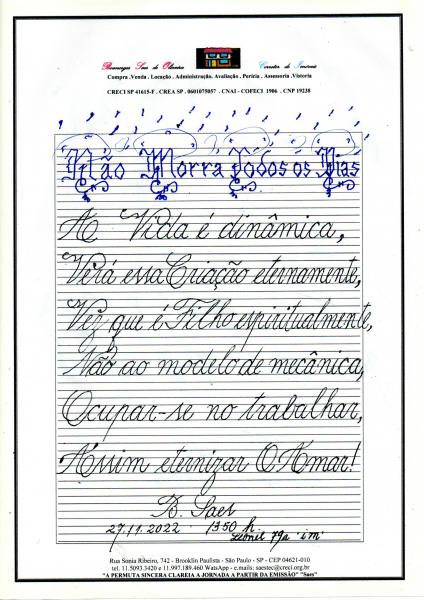 Boanerges Saes de Oliveira Corretor de Imóveis
Compra .Venda . Locação . Administração. Avaliação . Perícia . Assessoria .Vistoria
CRECI SP 41615-F . CREA SP . 0601075057 . CNAI - COFECI 1906 . CNP 19238
Não Morra Todos os Dias
A Vida é dinâmica,
Verá essa Criação eternamente,
Vez que é Filho espiritualmente,
Não ao modelo de mecânica,
Ocupar-se no trabalhar,
Assim eternizar O Amor!
B. Saes
27.11.2022 1350 h
Rua Sonia Ribeiro, 742 - Brooklin Paulista - São Paulo - SP - CEP 04621-010
tel. 11.5093.3420 e 11.997.189.460 WatsApp - e.mails: saestec@creci.org.br
"A PERMUTA SINCERA CLAREIA A JORNADA A PARTIR DA EMISSÃO" "Saes"